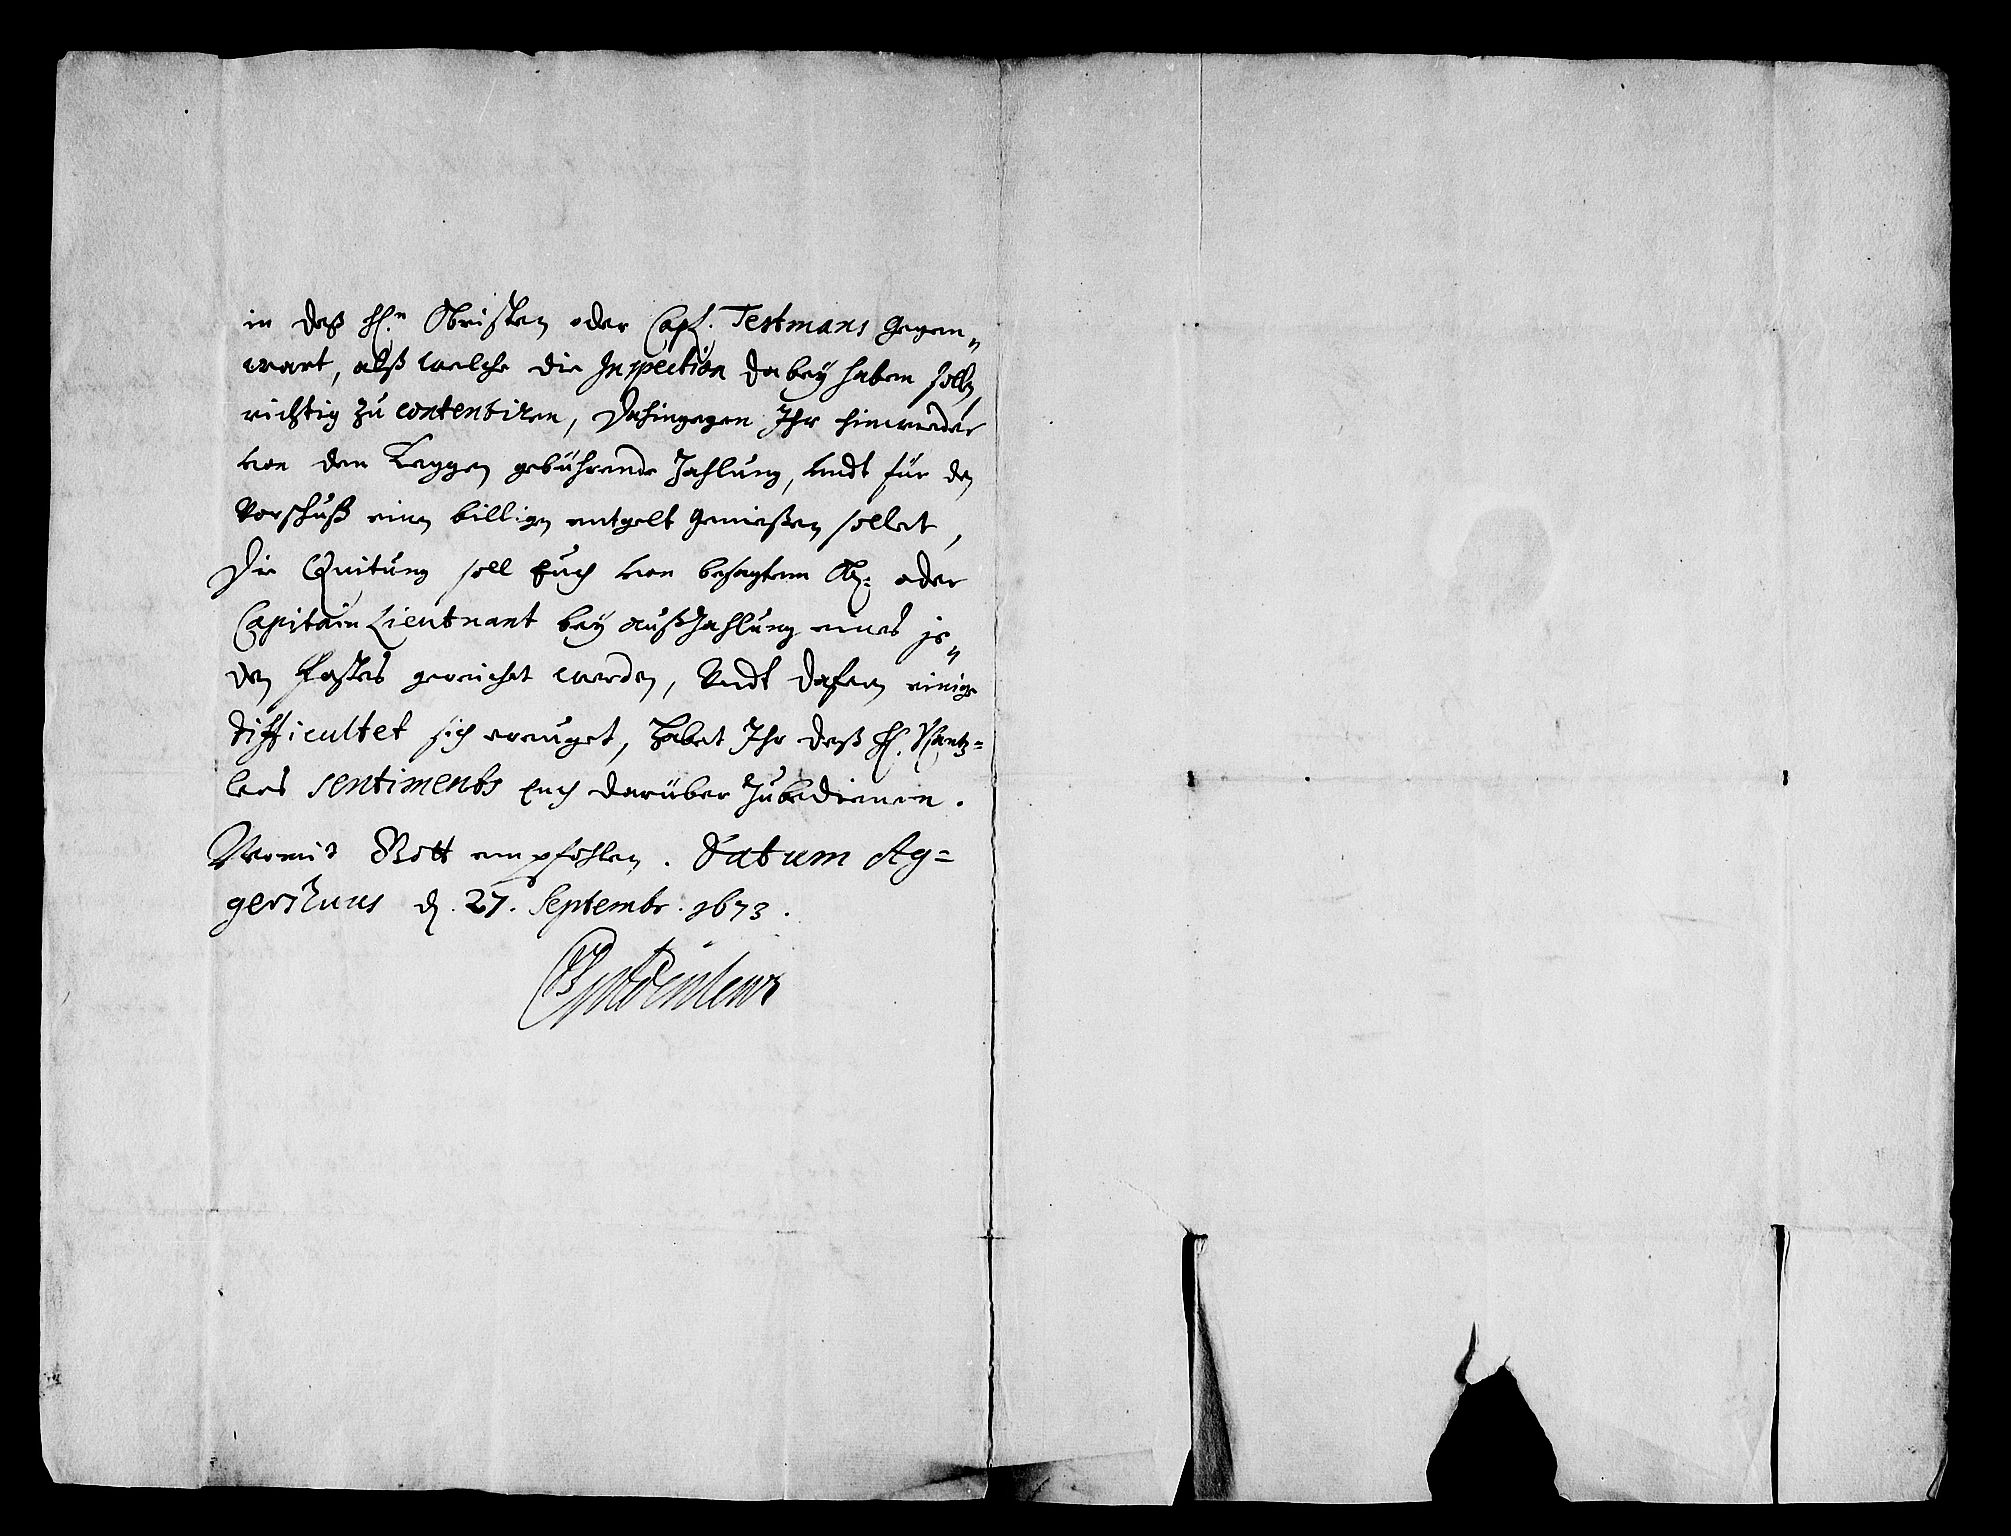 in deß H.n Obristen oder Capt. Testmans gegen„
wart, alß welche die Inspection dabey haben solln,
richtig zu contentiren, dahingegen Ihr hinwieder
von den gebührende Zahlung, undt für den
Vorschuß einen billigen entgelt genießen sollet,
Die Quitung soll Euch von besagtem Ob: oder
Capitain Lieutnant bey außzahlung eines je„
den Postes gereichet werden, Undt dafern einige
difficultet sich ereuget, habet Ihr deß H. Cantz=
lers sentiments Euch darüber zubedienen.
Womit Gott empfohlen. Datum Ag=
gershuus d. 27. Septembr. 1673.
Gyldenlew